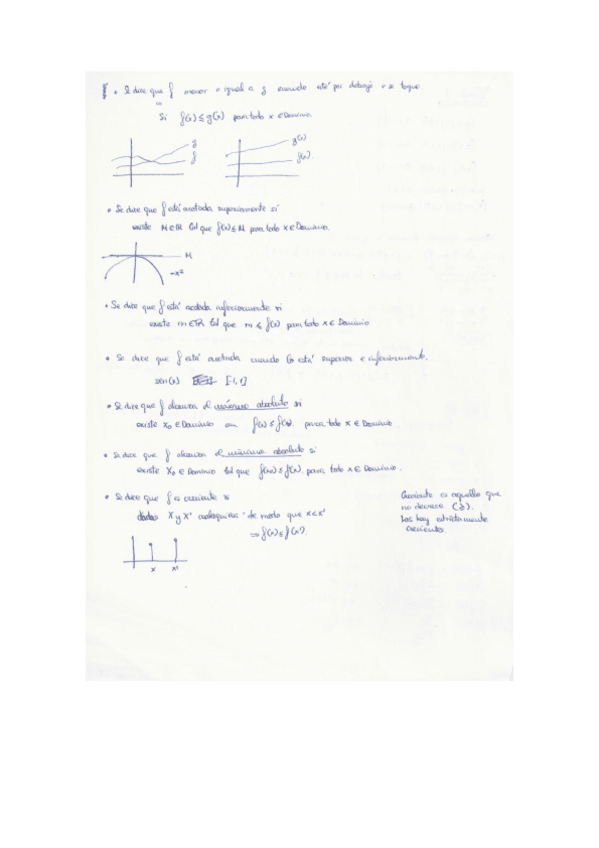 • Se dice que f menor o igual a g cuando esté por debajo o se toque
Si f(x) ≤ g(x) para todo x ∈ Dominio
g
f
g(x)
f(x).
• Se dice que f está acotada superiormente si
existe M ∈ ℝ tal que f(x) ≤ M para todo x ∈ Dominio.
M
-x²
• Se dice que f está acotada inferiormente si
existe m ∈ ℝ tal que m ≤ f(x) para todo x ∈ Dominio
• Se dice que f está acotada cuando lo está superior e inferiormente.
sen(x) [-1,1]
• Se dice que f alcanza el máximo absoluto si
existe x₀ ∈ Dominio con f(x) ≤ f(x₀). para todo x ∈ Dominio
• Se dice que f alcanza el mínimo absoluto si
existe x₀ ∈ Dominio tal que f(x₀) ≤ f(x). para todo x ∈ Dominio.
• Se dice que f es creciente si
dadas x y x' cualesquiera de modo que x < x'
⇒ f(x) ≤ f(x').
x x'
Creciente es aquella que
no decrece
Las hay estrictamente
crecientes.